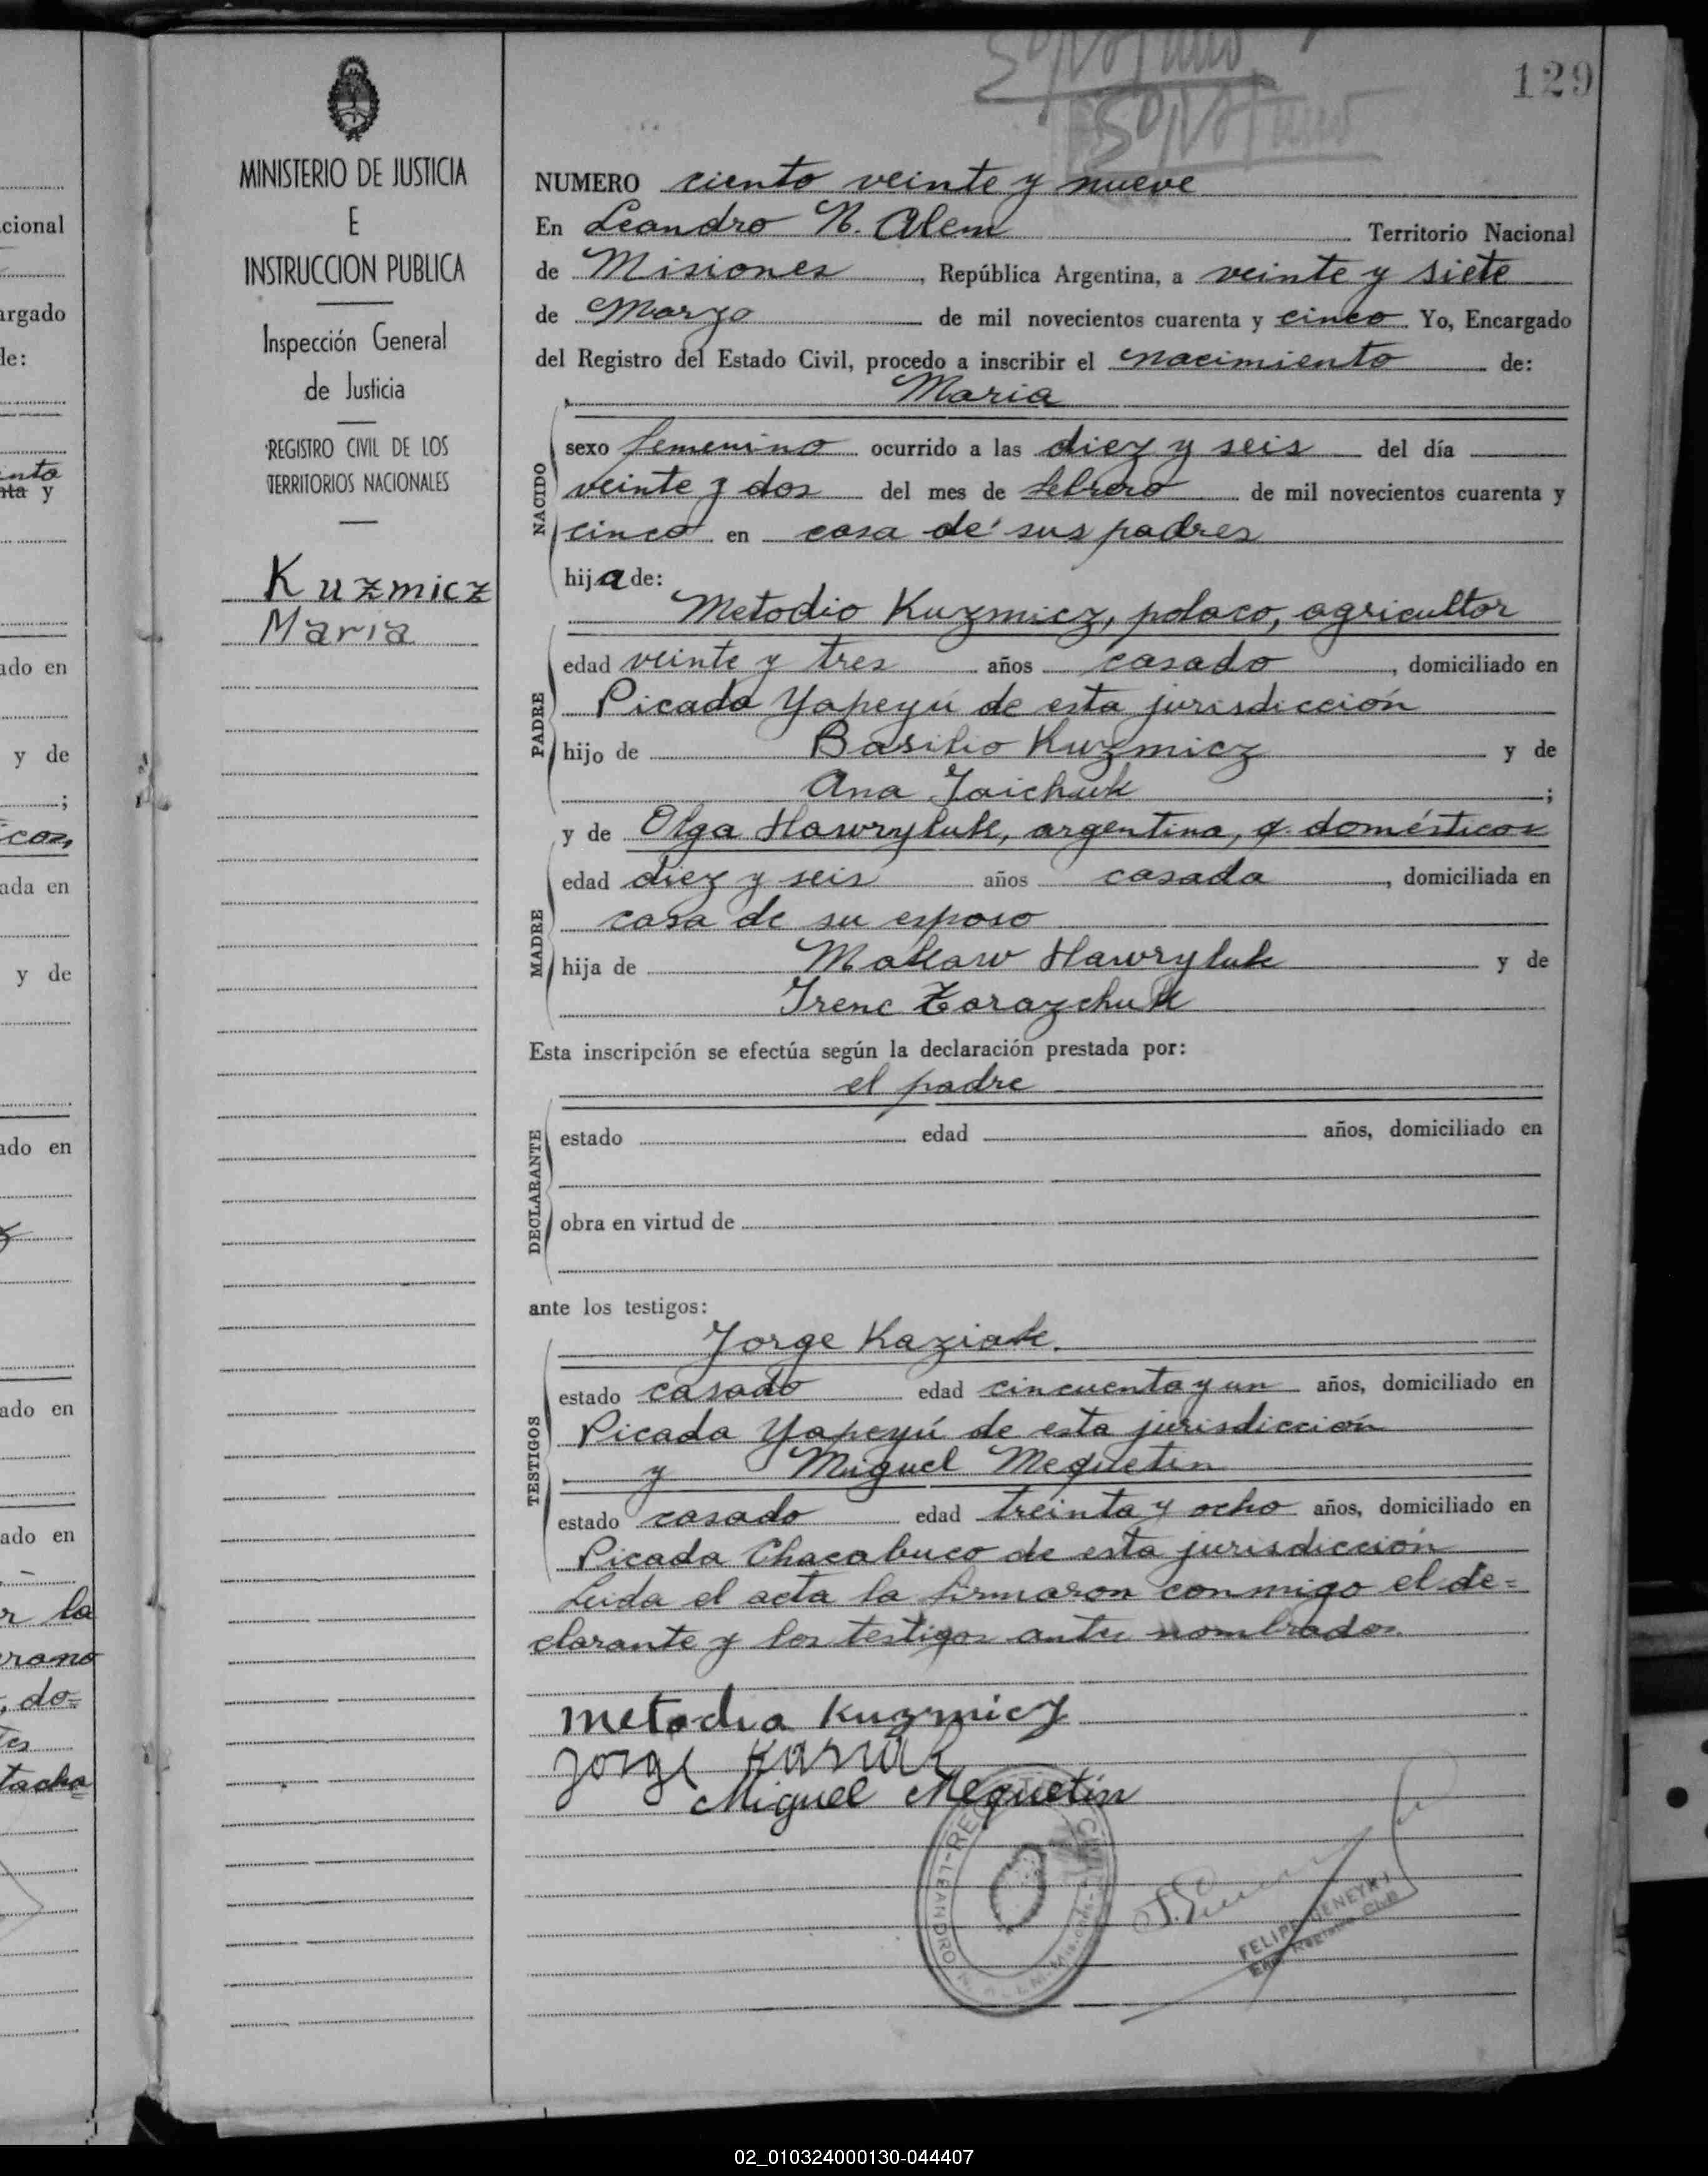 129
MINISTERIO DE JUSTICIA
E
INSTRUCCION PUBLICA
Inspección General
de Justicia
REGISTRO CIVIL DE LOS
TERRITORIOS NACIONALES
Kuzmicz
Maria
NUMERO ciento veinte y nueve
En Leandro N. Alem Territorio Nacional
de Misiones, República Argentina, a veinte y siete
de Marzo de mil novecientos cuarenta y cinco. Yo, Encargado
del Registro del Estado Civil, procedo a inscribir el nacimiento de:
Maria
NACIDO
sexo femenino ocurrido a las diez y seis del día
veinte y dos del mes de febrero de mil novecientos cuarenta y
cinco en casa de sus padres
hija de:
Metodio Kuzmicz, polaco, agricultor
PADRE
edad veinte y tres años casado, domiciliado en
Picada Yapeyú de esta jurisdicción
hijo de Basilio Kuzmicz y de
Ana Jaichuk;
y de Olga Hawryluk, argentina, q. domésticos
MADRE
edad diez y seis años casada, domiciliada en
casa de su esposo
hija de Makaw Hawryluk y de
Irene Zarazchuk
Esta inscripción se efectúa según la declaración prestada por:
el padre
DECLARANTE
estado edad años, domiciliado en
obra en virtud de
ante los testigos:
Jorge Kaziak.
TESTIGOS
estado casado edad cincuenta y un años, domiciliado en
Picada Yapeyú de esta jurisdicción
y Miguel Mequetin
estado casado edad treinta y ocho años, domiciliado en
Picada Chacabuco de esta jurisdicción
Leida el acta la firmaron conmigo el de=
clarante y los testigos antes nombrados.
metodia Kuzmicz
Jorge
Miguel Mequetin
LEANDRO N. ALEM
FELIPE
Enc. Registro Civil
cional
argado
de:
ado en
y de
;
cos,
ada en
y de
ado en
ado en
ado en
r la
do=
02_010324000130-044407